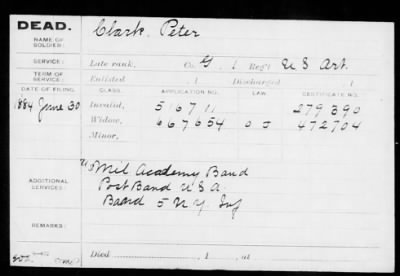 DEAD.
NAME OF SOLDIER: Clark, Peter
SERVICE: Late rank, Co. G, 1 Reg't U S Art.
TERM OF SERVICE: Enlisted , 1 Discharged , 1
DATE OF FILING. CLASS. APPLICATION NO. LAW. CERTIFICATE NO.
1884 June 30 Invalid, 516711 279390
Widow, 667654 472704
Minor,
ADDITIONAL SERVICES: U S Mil Academy Band
Post Band U.S.A.
Band 5 N.Y. Inf
REMARKS:
Died , 1 , at